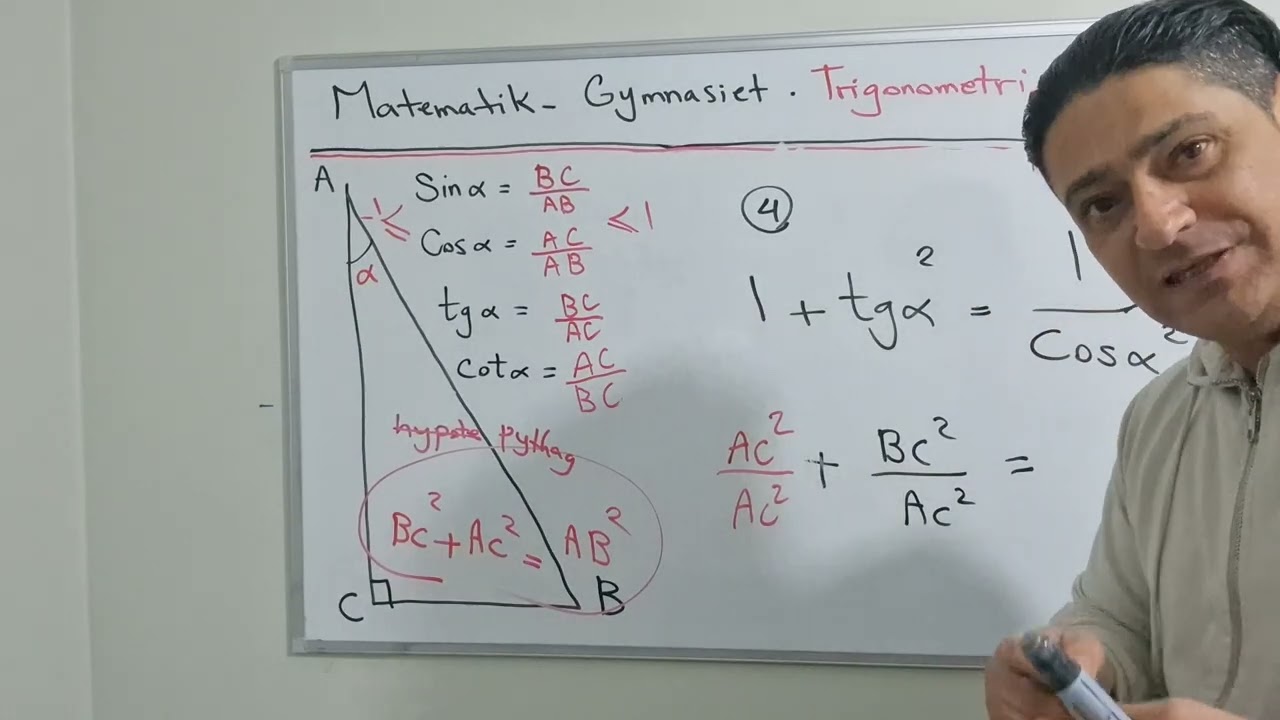 Matematik- Gymnasiet. Trigonometri
A
α
C
B
-1 ≤
Sin α = BC/AB
Cos α = AC/AB
≤ 1
tg α = BC/AC
cot α = AC/BC
pythag
BC² + AC² = AB²
4
1 + tgα² = 1/Cosα²
AC²/AC² + BC²/AC² =